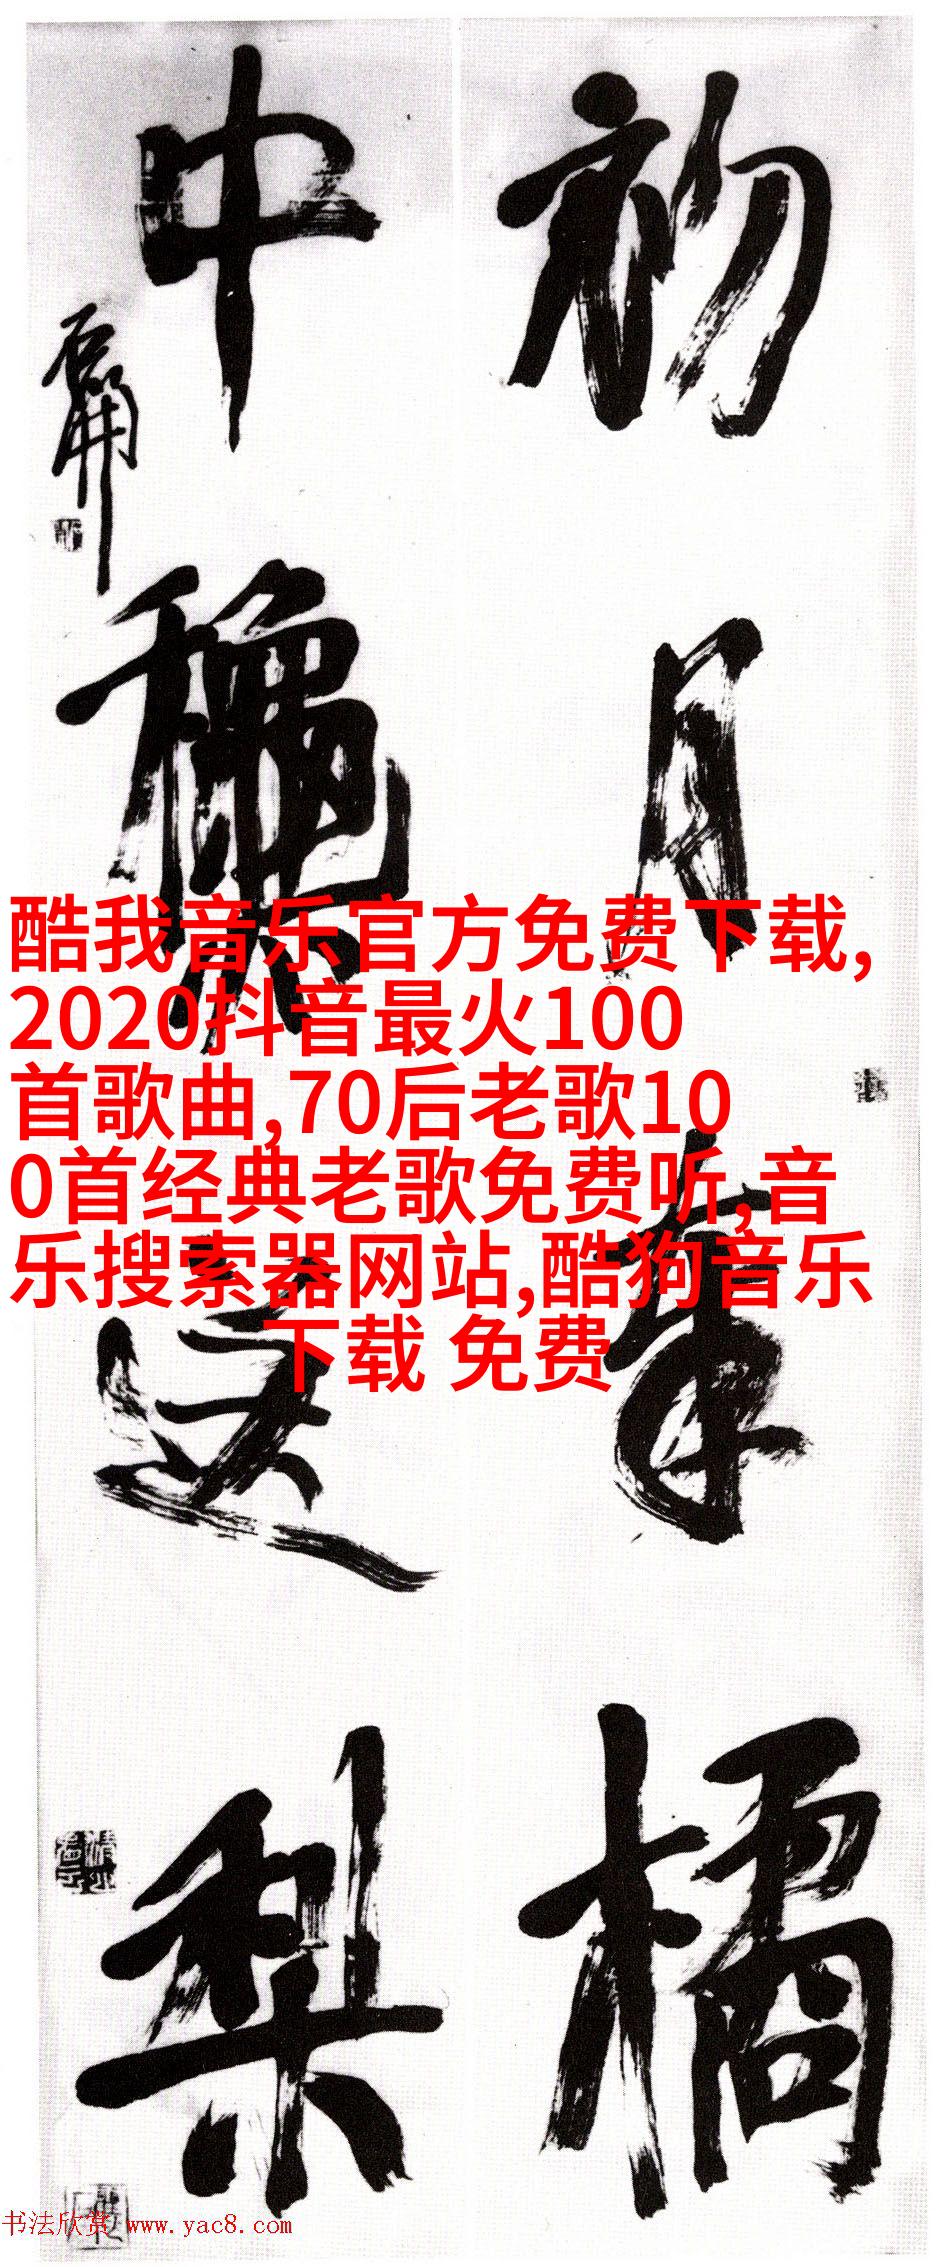 初月橘
中龝梨
酷我音乐官方免费下载,
2020抖音最火100
首歌曲,70后老歌10
0首经典老歌免费听,音
乐搜索器网站,酷狗音乐
下载 免费
书法欣赏 www.yac8.com